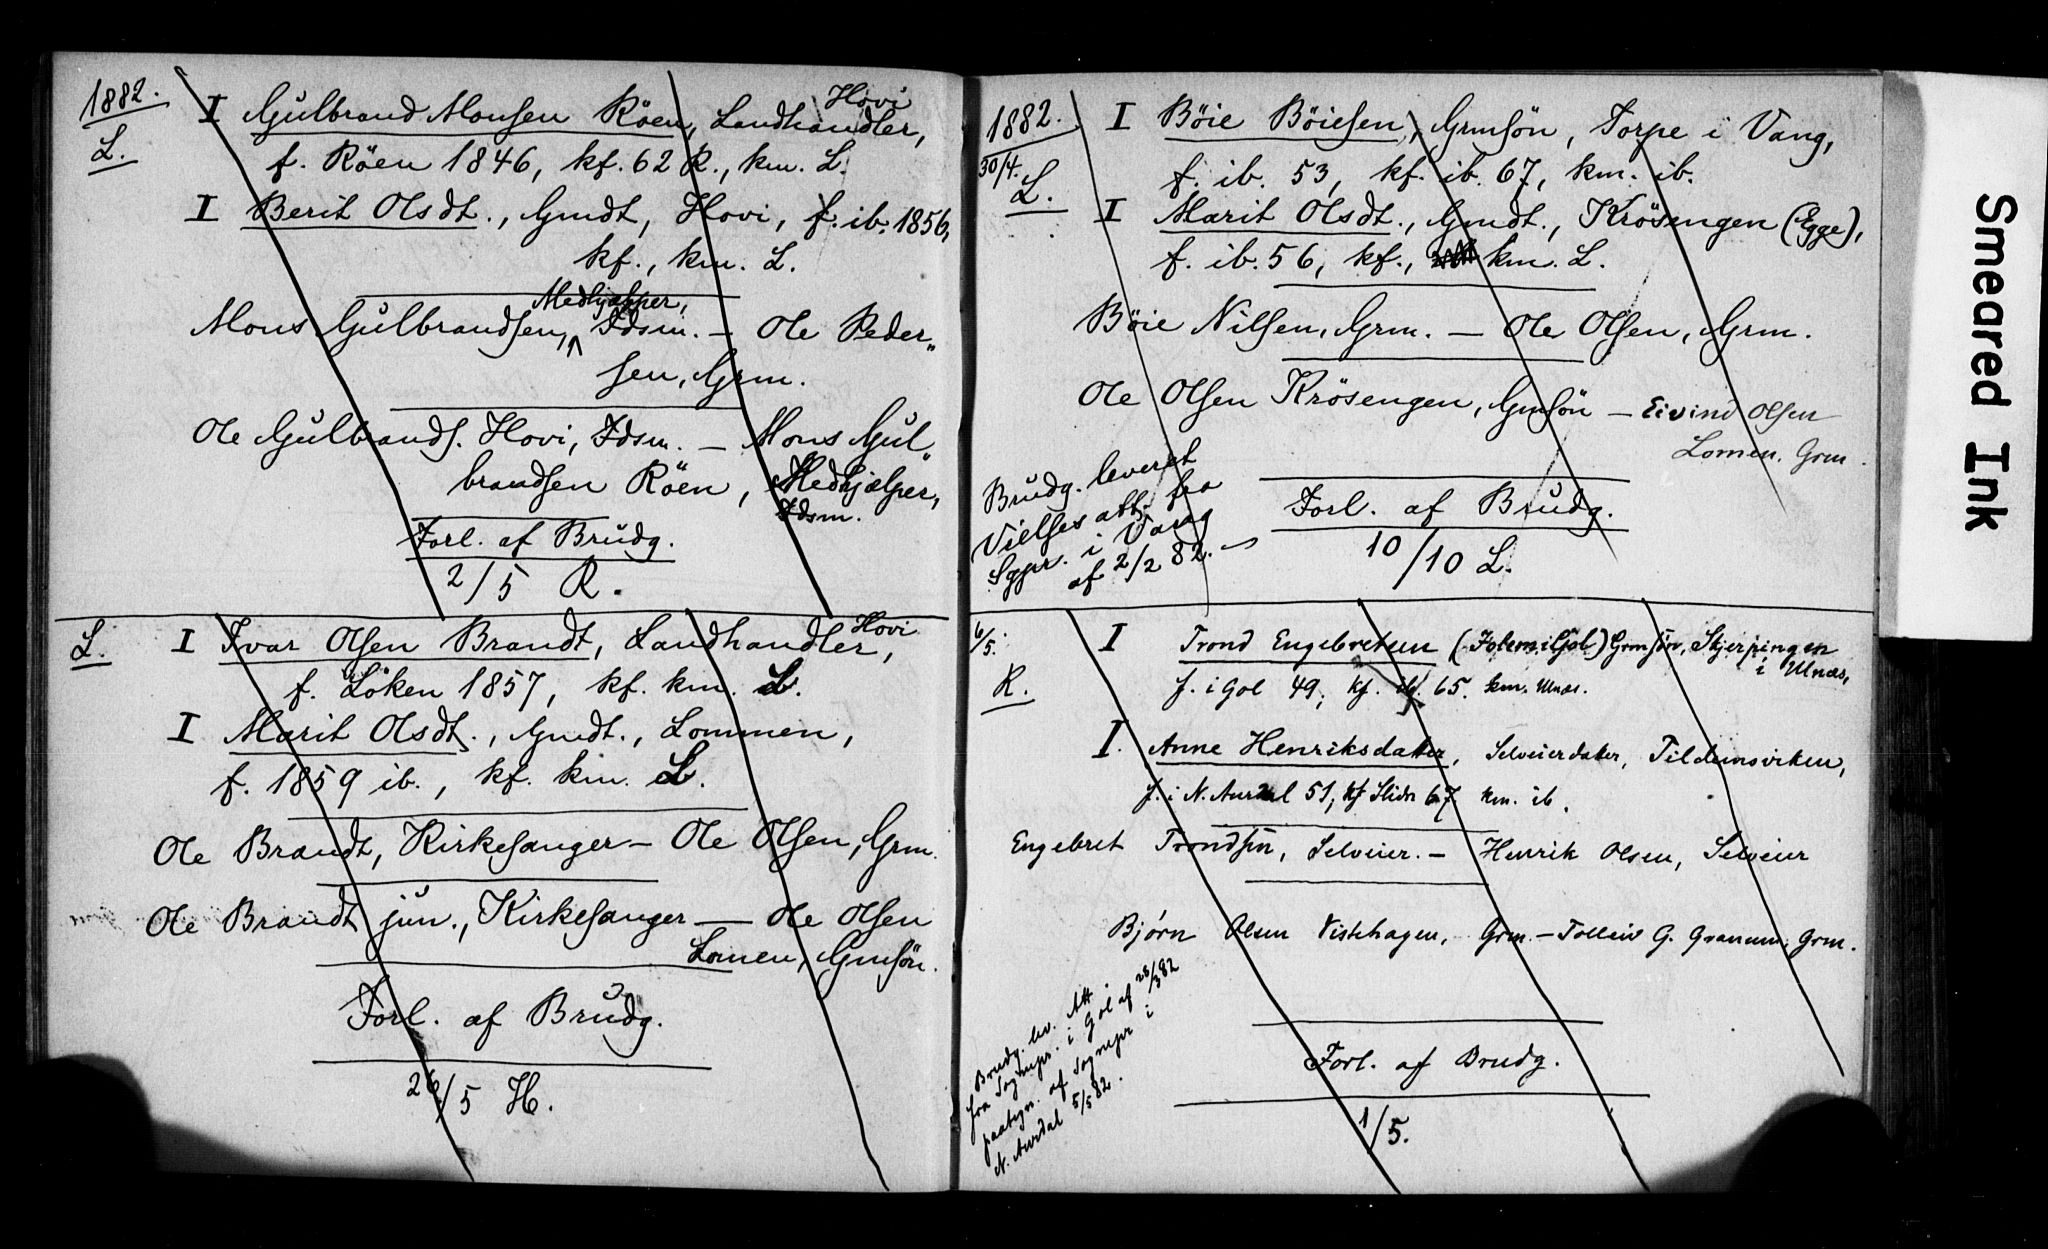 1882.
L.
I Gulbrand Monsen Röen, Landhandler, Hovi
f. Röen 1846, kf. 62 R., km. L.
I Berit Olsdt., Gmdt, Hovi, f. ib. 1856,
kf., km. L.
Medhjælper,
Mons Gulbrandsen, Fdsm. — Ole Peder„
sen, Grm.
Ole Gulbrands. Hovi, Fdsm. — Mons Gul„
brandsen Röen, Medhjælper,
Fdsm.
Forl. af Brudg.
2/5 R.
L. I Ivar Olsen Brandt, Landhandler, Hovi
f. Löken 1857, kf. km. L.
I Marit Olsdt., Gmdt., Lommen,
f. 1859 ib., kf. km. L.
Ole Brandt, Kirkesanger — Ole Olsen, Grm.
Ole Brandt jun., Kirkesanger — Ole Olsen
Lomen, Gmsön.
Forl. af Brudg.
26/5 H.
1882.
30/4.
L.
I Böie Böiesen, Grmsön, Torpe i Vang,
f. ib. 53, kf. ib. 67, km. ib.
I Marit Olsdt., Gmdt., Krösengen (Egge),
f. ib. 56, kf., km. L.
Böie Nilsen, Grm. — Ole Olsen, Grm.
Ole Olsen Krösengen, Gmsön — Eivind Olsen
Lomen. Grm.
Brudg. leveret
Vielses att. fra
Sgpr. i Vang
af 2/2 82. —
Forl. af Brudg.
10/10 L.
6/5.
R.
I Trond Engebretsen (Golem i Gol) Grmsön, Skjerpingen
i Ulnæs,
f. i Gol 49, kf. 65. km. Ulnæs.
I. Anne Henriksdatter, Selveierdatter, Tildemsviken,
f. i N. Aurdal 51, kf Slidr 67 km. ib.
Engebret Trondsen, Selveier. — Henrik Olsen, Selveier
Bjørn Olsen Vistehagen, Grm. — Tolleiv G. Granum, Grm.
Brudg. lev. Att.
fra Sognepr. i Gol af 28/3 82
paategn. af Sognepr i
N. Aurdal 5/5 82.
Forl. af Brudg.
1/5.
Smeared Ink